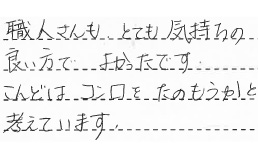 職人さんも とても 気持ちの
良い方で よかったです.
こんどは コンロを たのもうかと
考えています.